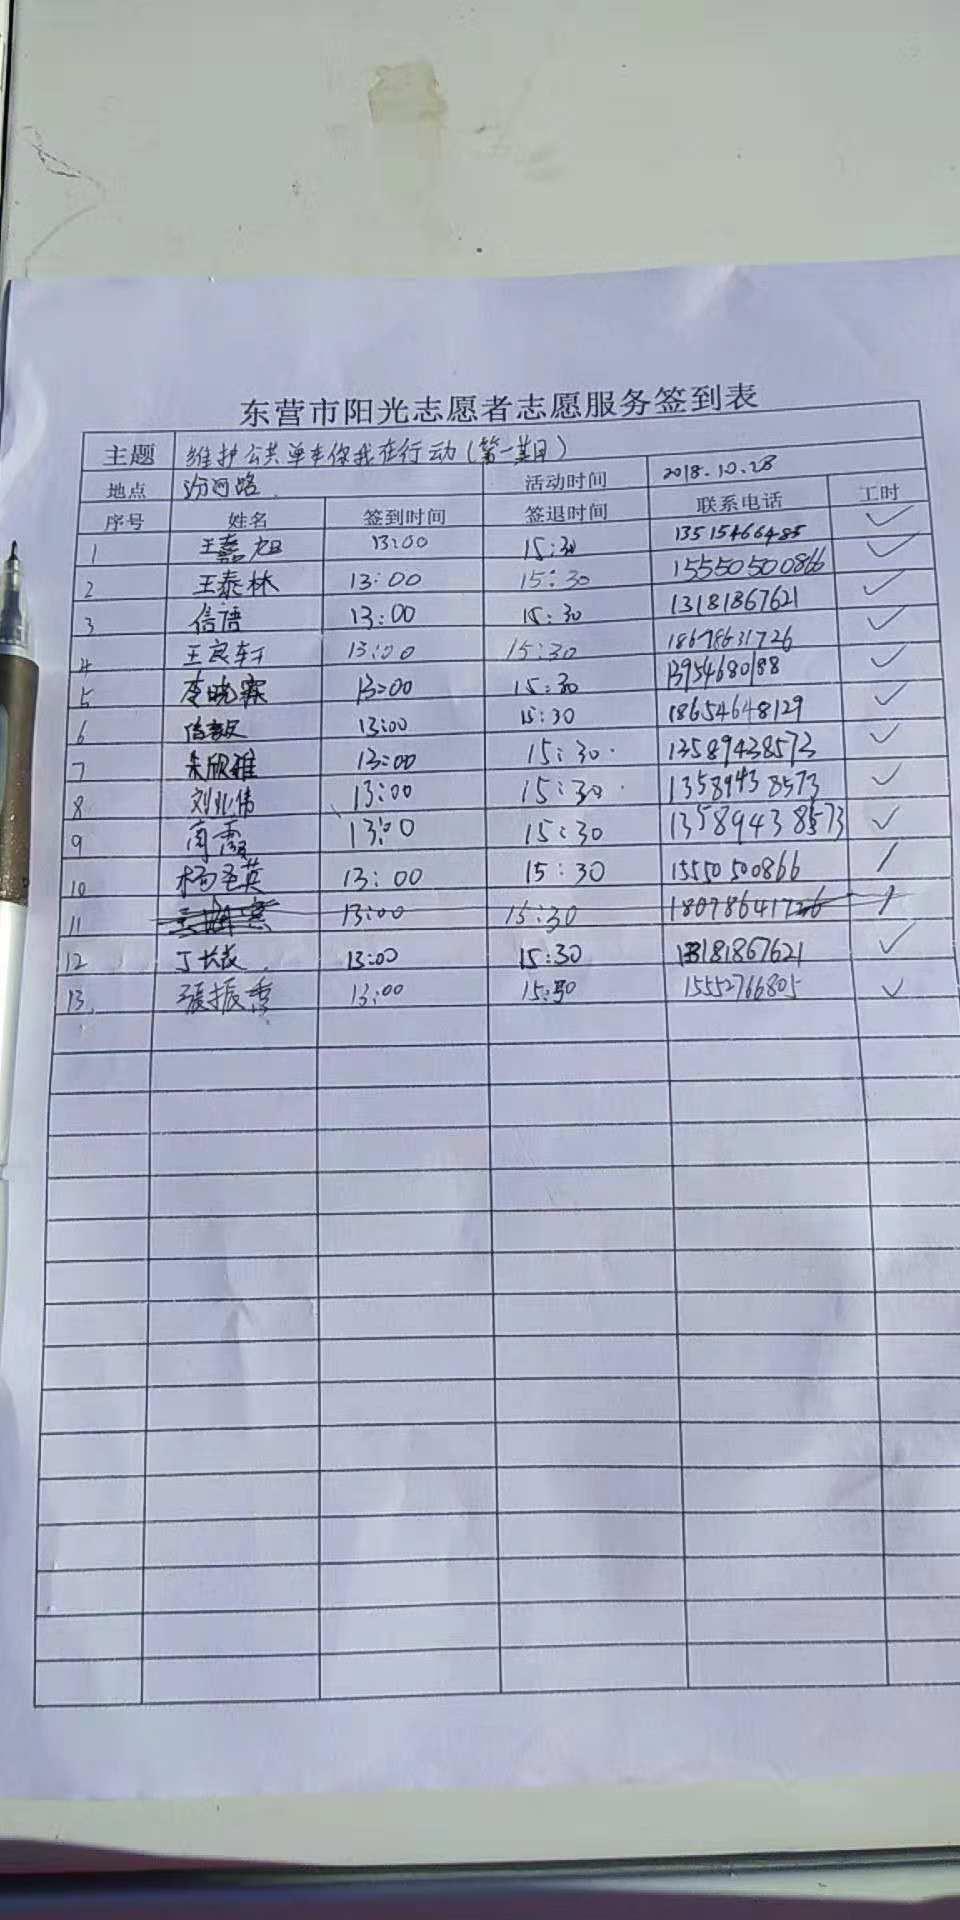 东营市阳光志愿者志愿服务签到表
主题 维护公共单车你我在行动(第一期)
地点 汾河路 活动时间 2018.10.28
序号 姓名 签到时间 签退时间 联系电话 工时
1 王嘉旭 13:00 15:30 13515466485 ✓
2 王泰林 13:00 15:30 15550500866 ✓
3 信语 13:00 15:30 13181867621 ✓
4 王宸轩 13:00 15:30 18678631726 ✓
5 李晓霖 13:00 15:30 13954680188 ✓
6 13:00 15:30 18654648129 ✓
7 朱欣雅 13:00 15:30 13589438573 ✓
8 刘兆伟 13:00 15:30 13589438573 ✓
9 商霞 13:00 15:30 13589438573 ✓
10 杨圣英 13:00 15:30 15550500866 /
11 13:00 15:30 /
12 丁长表 13:00 15:30 13181867621 ✓
13. 張振香 13:00 15:30 15552766805 ✓